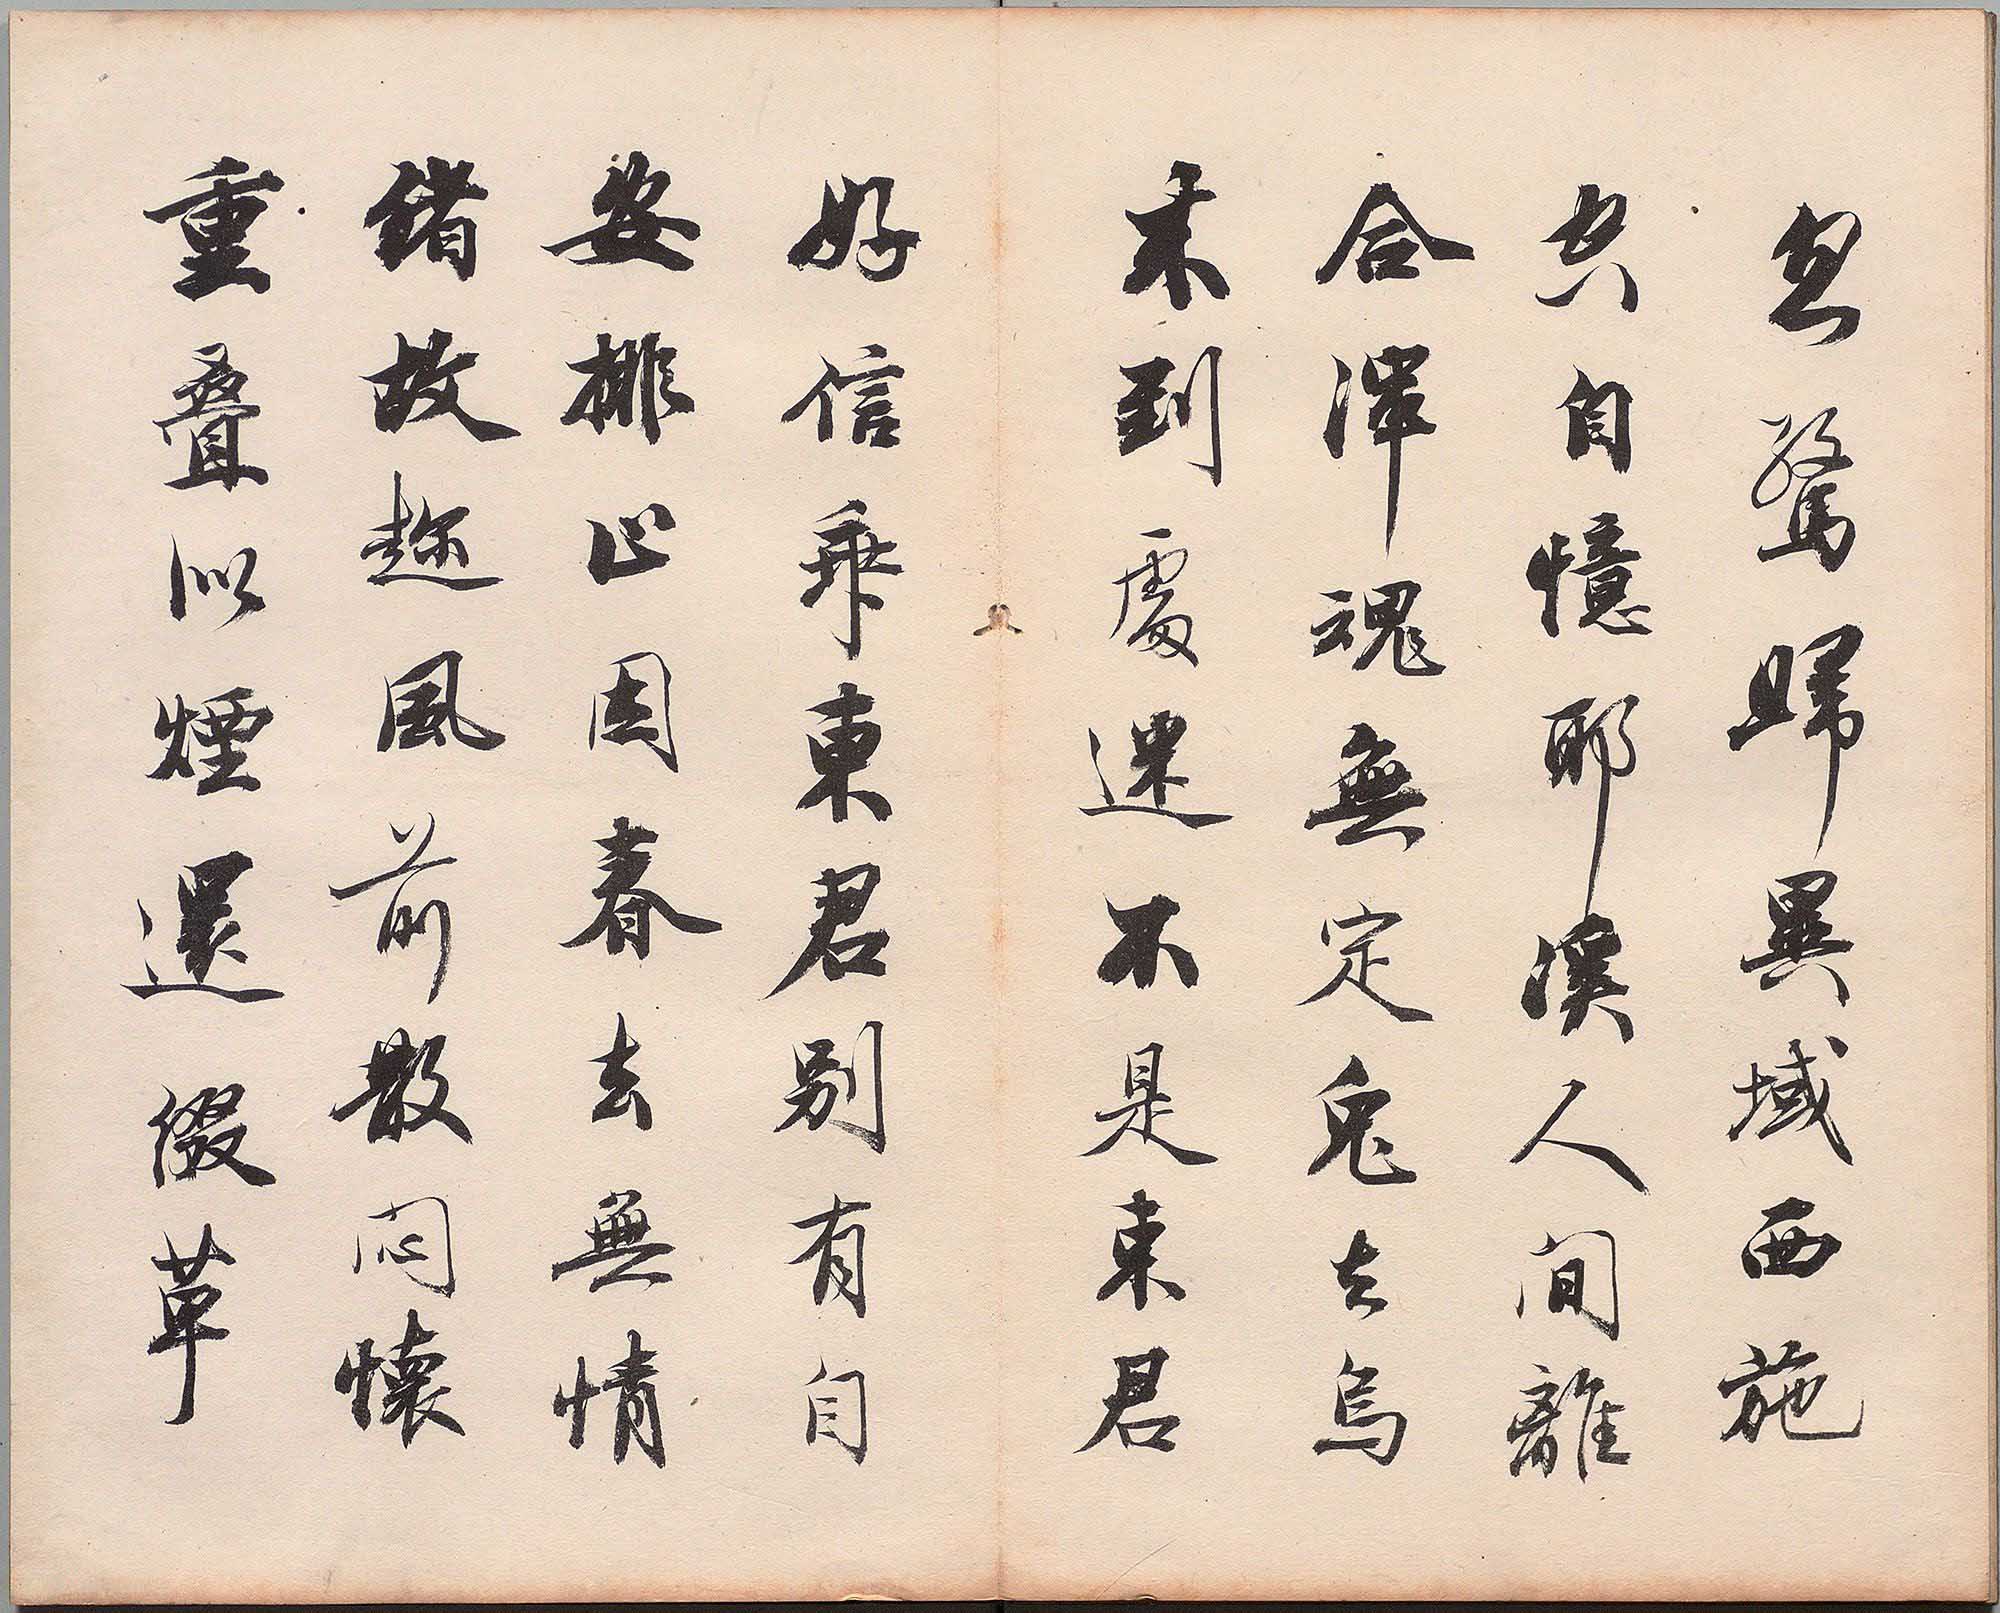 忽驚歸異域西施
空自憶耶溪人間離
合渾魂無定兔去烏
來到處迷不是東君
好信乖東君別有自
安排止因春去無情
緒故趂風前散悶懷
重疊似煙還綴草